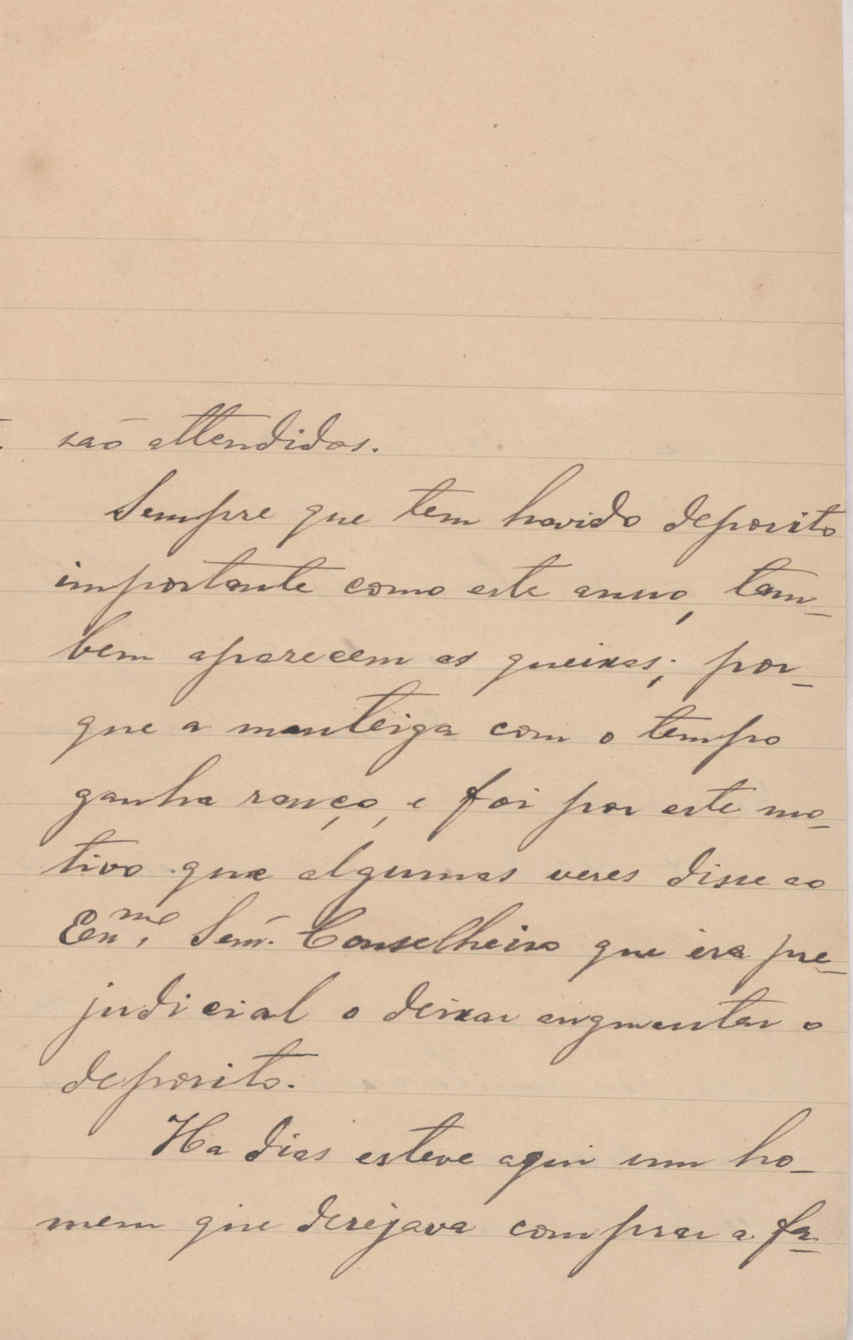 são attendidos.
Sempre que tem havido deposito
importante como este anno, tam-
bem aparecem as queixas; por-
que a manteiga com o tempo
ganha ranço, e foi por este mo-
tivo que algumas veses disse ao
Exmo. Senr. Conselheiro que era pre-
judicial o deixar augmentar o
deposito.
Ha dias esteve aqui um ho-
mem que desejava comprar a fa-